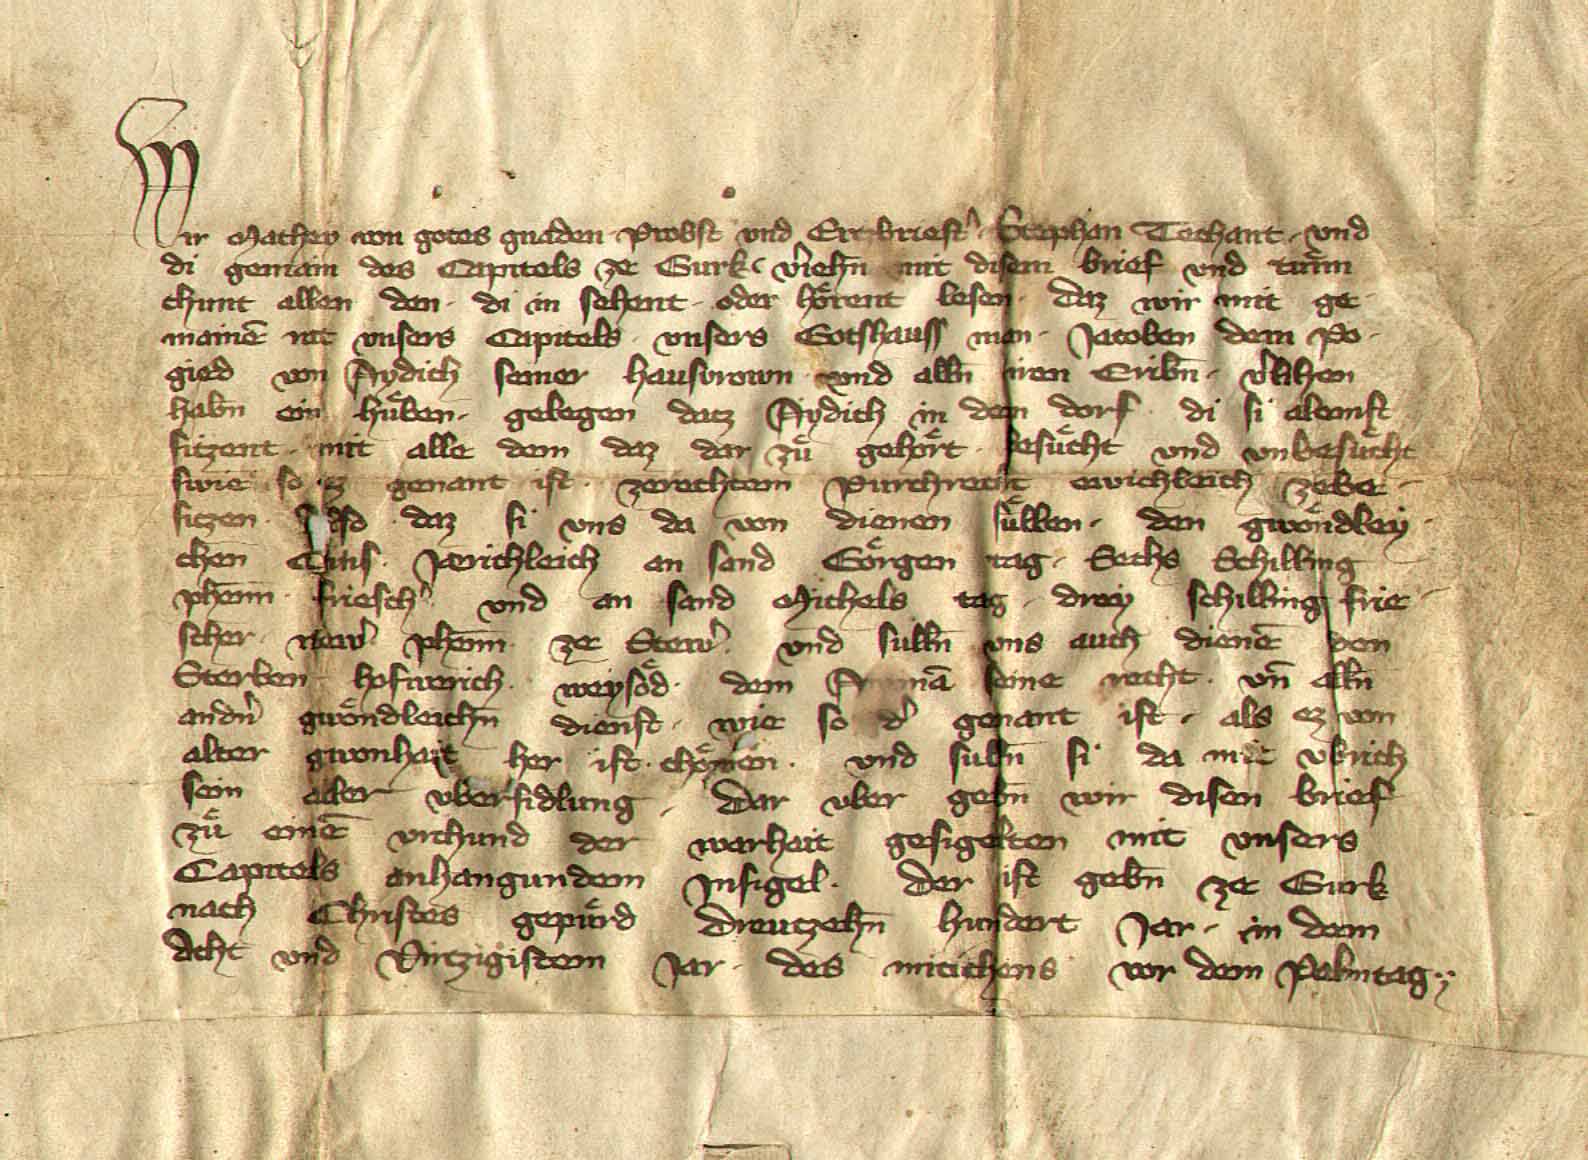 Wir Mathey von gotes gnaden Probst vnd Ertzbriest̉ Stephan Techant vnd
di gemain des Capitels ze Gurk v̉iehn̄ mit disem brief vnd tuͤm
chunt allen den · di in sehent · oder hoͤrent lesen · daz wir mit ge
mainē rat vnsers Capitels · vnsers Gotshauss man · Jacoben dem Po
gied von Aydich seiner hausvrown vnd alln̄ iren Eribn̄ · v̉lihen
habn̄ ein huͤben · gelegen datz Aydich in dem dorf · di si alemst
sitzent · mit alle dem daz dar zuͤ gehoͤrt · besuͤcht vnd vnbesuͤcht
swie so ez genant ist · zerechtem Purchrecht ewichleich zebe
sitzen · Also daz si vns da von dienen suͤllen · den gwoͤndley
chen Cins · Jaerichleich an sand Goͤrgen tag · Sechs Schilling
phenn̄ · friesch̉ · vnd an sand Michels tag · drey schilling frie
scher · new̉ phenn̄ · ze Stew̉ · vnd sulln̄ vns auch dienē den
Sterben · hofwerich · weysoͤd · dem Ammā seine recht · vn̄ alln̄
andn̉ gwoͤndleichn̄ dienst · wie so d̉ genant ist · als ez von
alter gwonhait her ist choͤmen · vnd suln̄ si da mit vbrich
sein aller vbersidlung · Dar vber gebn̄ wir disen brief
zuͤ einē vrchund der warhait gesigelten mit vnsers
Capitels anhangundem Insigel · Der ist gebn̄ ze Gurk
nach Christes gepuͤrd Dreutzehn̄ hundert Jar · in dem
Acht vnd Virtzigistem Jar · des mitichens vor dem Palmtag